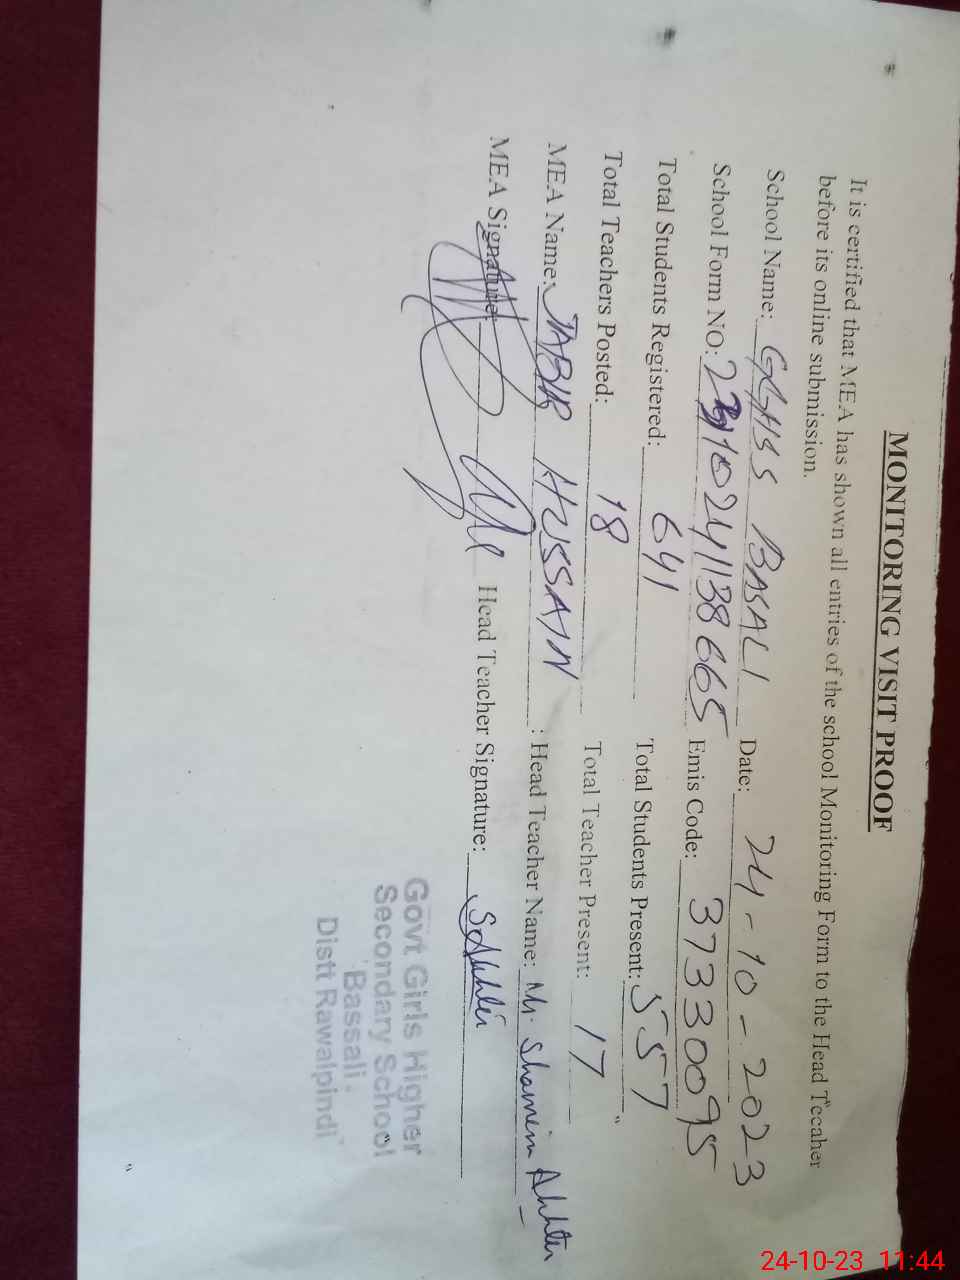 MONITORING VISIT PROOF
It is certified that MEA has shown all entries of the school Monitoring Form to the Head Tecaher
before its online submission.
School Name: GGHSS BASALI Date: 24-10-2023
School Form NO: Emis Code: 37330095
Total Students Registered: 641 Total Students Present: 557
Total Teachers Posted: 18 Total Teacher Present: 17
MEA Name: JABIR HUSSAIN : Head Teacher Name: Shamim Akhter
MEA Signature: Head Teacher Signature: SAkhter
Govt Girls Higher
Secondary School
Bassali.
Distt Rawalpindi
24-10-23 11:44